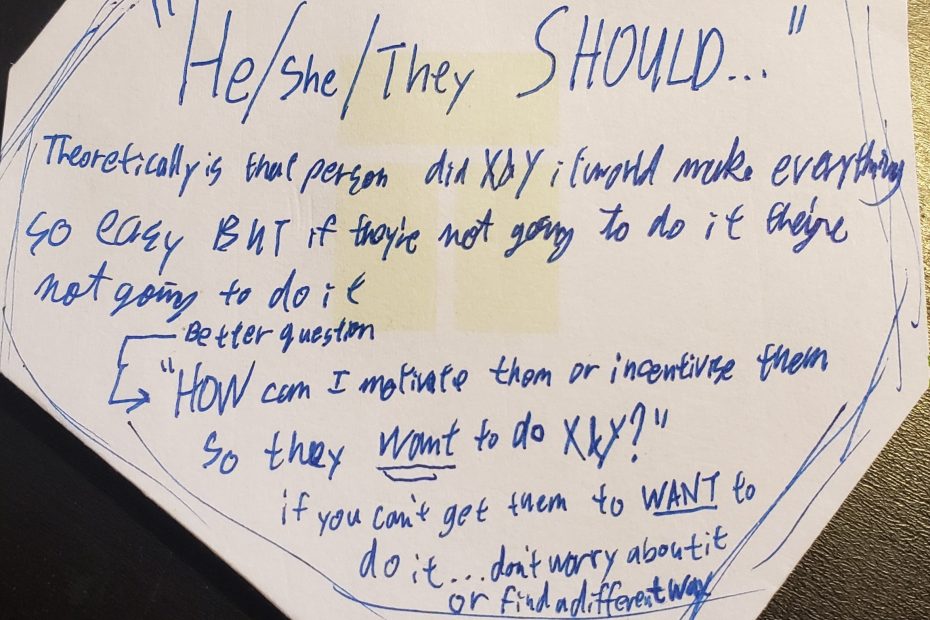 "He/She/They SHOULD..."
Theoretically is that person did X&Y it would make everything
so easy BUT if they're not going to do it they're
not going to do it
Better question
"HOW can I motivate them or incentivize them
so they want to do X&Y?"
if you can't get them to WANT to
do it... don't worry about it
or find a different way